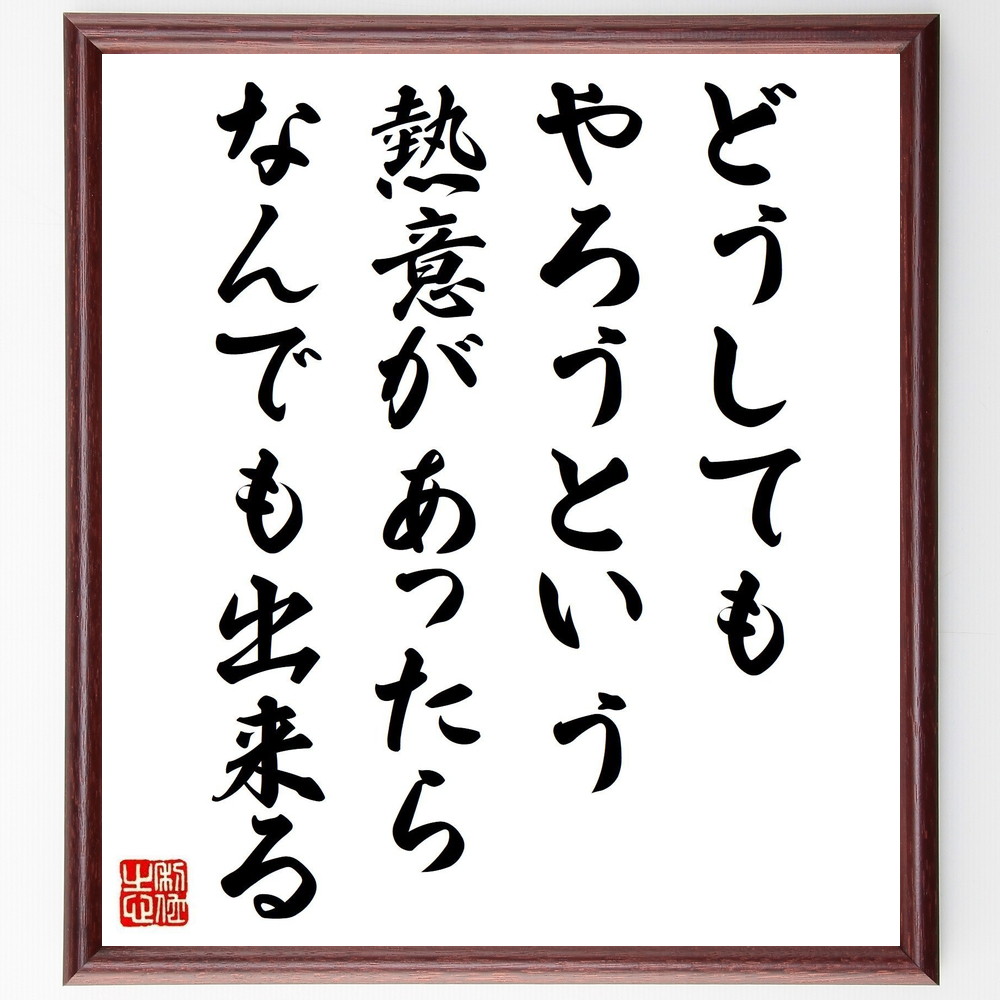 どうしても
やろうという
熱意があったら
なんでも出来る